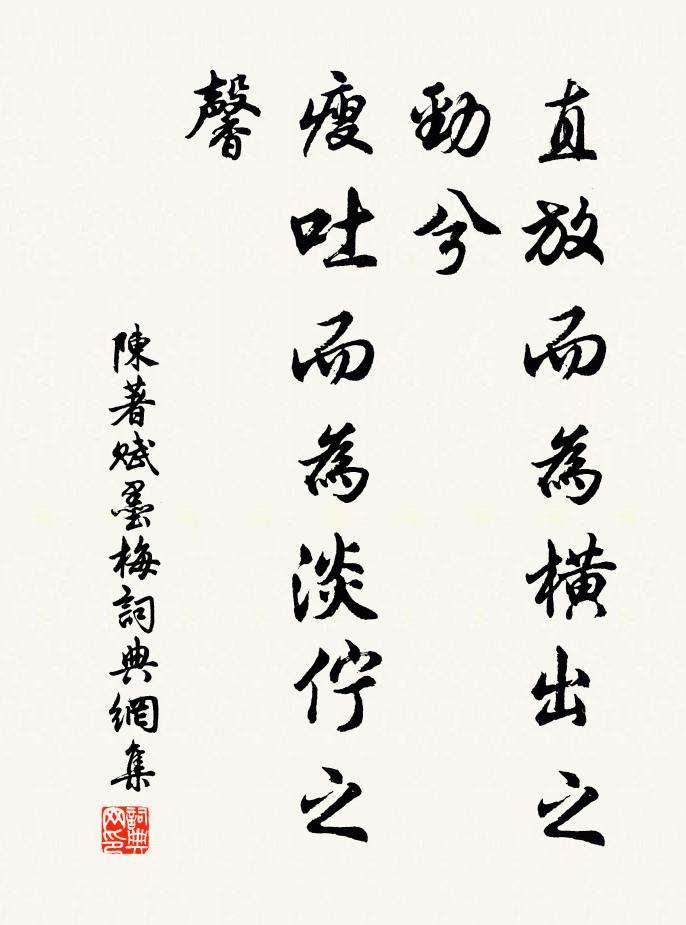 直放而為橫出之
勁兮
瘦吐而為淡佇之
馨
陳著賦墨梅詞典網集
詞典网印